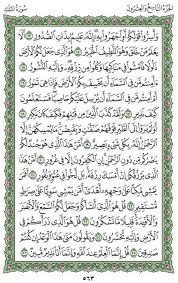 الجزء التاسع والعشرون سورة الملك
وَأَسِرُّوا۟ قَوْلَكُمْ أَوِ ٱجْهَرُوا۟ بِهِۦٓ إِنَّهُۥ عَلِيمٌۢ بِذَاتِ ٱلصُّدُورِ ١٣ أَلَا
يَعْلَمُ مَنْ خَلَقَ وَهُوَ ٱللَّطِيفُ ٱلْخَبِيرُ ١٤ هُوَ ٱلَّذِى جَعَلَ لَكُمُ ٱلْأَرْضَ
ذَلُولًا فَٱمْشُوا۟ فِى مَنَاكِبِهَا وَكُلُوا۟ مِن رِّزْقِهِۦ وَإِلَيْهِ ٱلنُّشُورُ ١٥
ءَأَمِنتُم مَّن فِى ٱلسَّمَآءِ أَن يَخْسِفَ بِكُمُ ٱلْأَرْضَ فَإِذَا هِىَ تَمُورُ ١٦
أَمْ أَمِنتُم مَّن فِى ٱلسَّمَآءِ أَن يُرْسِلَ عَلَيْكُمْ حَاصِبًا فَسَتَعْلَمُونَ
كَيْفَ نَذِيرِ ١٧ وَلَقَدْ كَذَّبَ ٱلَّذِينَ مِن قَبْلِهِمْ فَكَيْفَ كَانَ نَكِيرِ
١٨ أَوَلَمْ يَرَوْا۟ إِلَى ٱلطَّيْرِ فَوْقَهُمْ صَٰٓفَّٰتٍ وَيَقْبِضْنَ مَا يُمْسِكُهُنَّ إِلَّا
ٱلرَّحْمَٰنُ إِنَّهُۥ بِكُلِّ شَىْءٍۭ بَصِيرٌ ١٩ أَمَّنْ هَٰذَا ٱلَّذِى هُوَ جُندٌ لَّكُمْ
يَنصُرُكُم مِّن دُونِ ٱلرَّحْمَٰنِ إِنِ ٱلْكَٰفِرُونَ إِلَّا فِى غُرُورٍ ٢٠ أَمَّنْ
هَٰذَا ٱلَّذِى يَرْزُقُكُمْ إِنْ أَمْسَكَ رِزْقَهُۥ بَل لَّجُّوا۟ فِى عُتُوٍّ وَنُفُورٍ
٢١ أَفَمَن يَمْشِى مُكِبًّا عَلَىٰ وَجْهِهِۦٓ أَهْدَىٰٓ أَمَّن يَمْشِى سَوِيًّا عَلَىٰ صِرَٰطٍ
مُّسْتَقِيمٍ ٢٢ قُلْ هُوَ ٱلَّذِىٓ أَنشَأَكُمْ وَجَعَلَ لَكُمُ ٱلسَّمْعَ وَٱلْأَبْصَٰرَ
وَٱلْأَفْـِٔدَةَ قَلِيلًا مَّا تَشْكُرُونَ ٢٣ قُلْ هُوَ ٱلَّذِى ذَرَأَكُمْ فِى
ٱلْأَرْضِ وَإِلَيْهِ تُحْشَرُونَ ٢٤ وَيَقُولُونَ مَتَىٰ هَٰذَا ٱلْوَعْدُ إِن كُنتُمْ
صَٰدِقِينَ ٢٥ قُلْ إِنَّمَا ٱلْعِلْمُ عِندَ ٱللَّهِ وَإِنَّمَآ أَنَا۠ نَذِيرٌ مُّبِينٌ ٢٦
٥٦٣